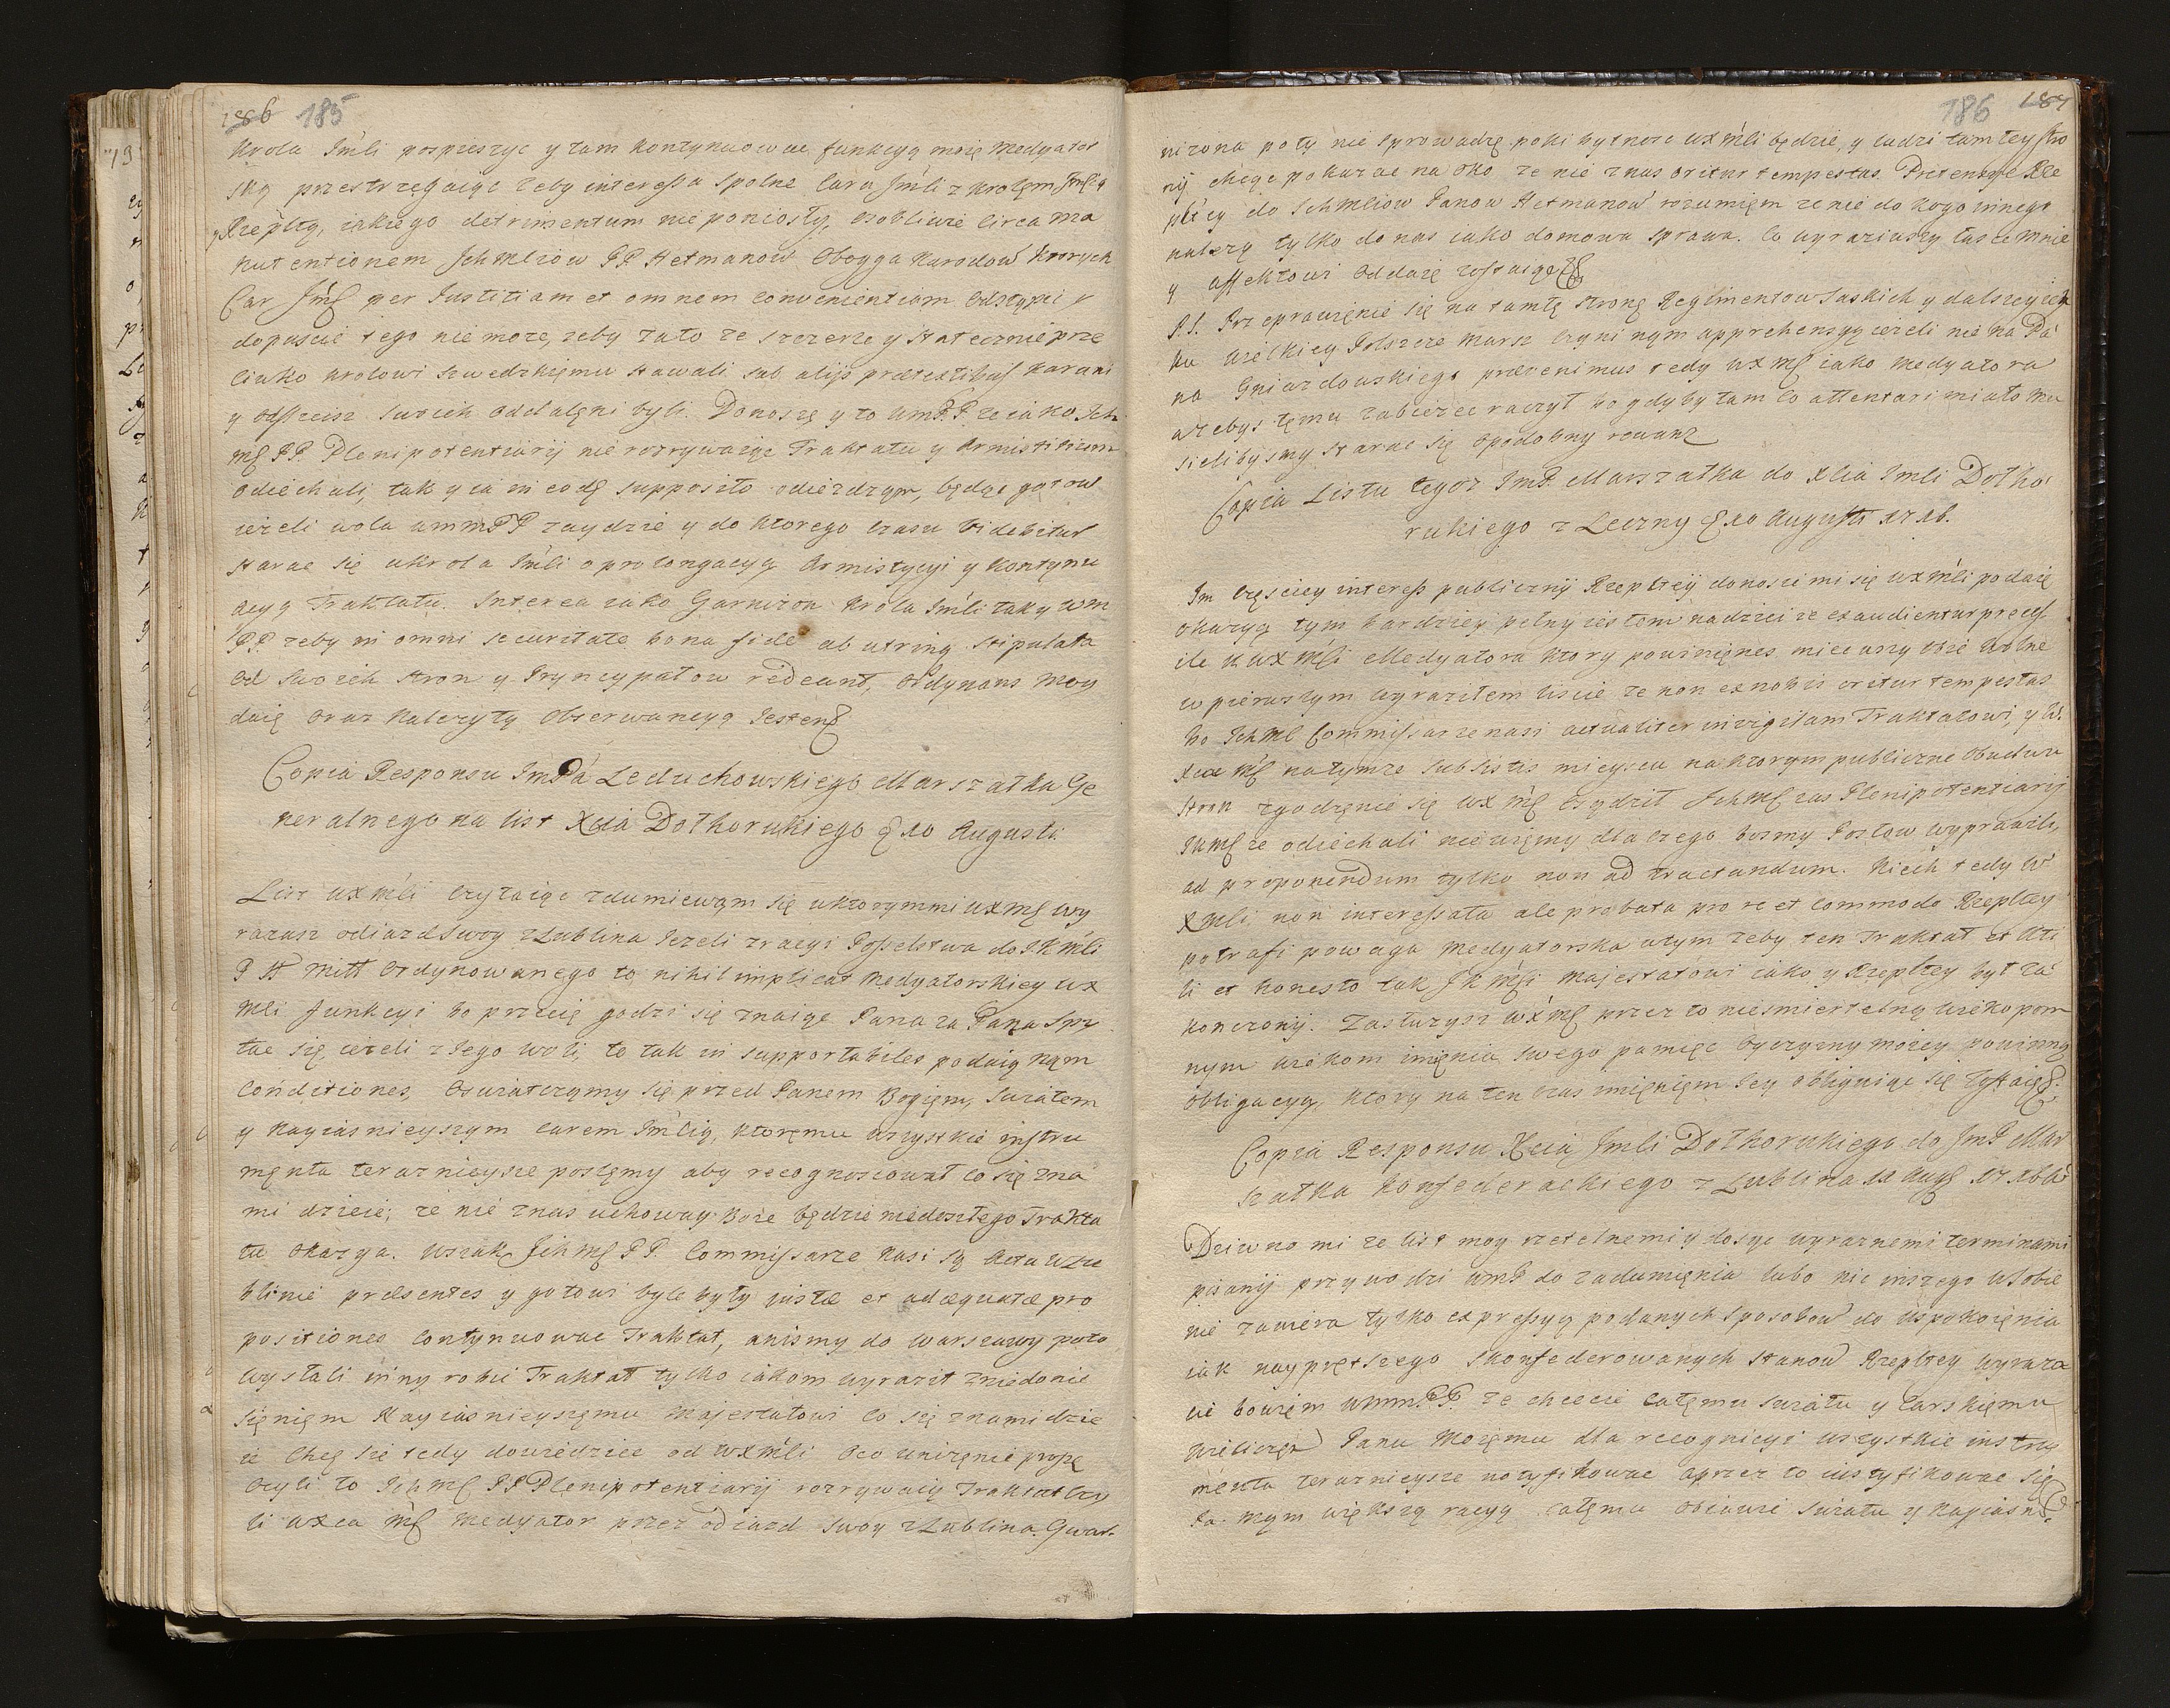 186 185
Krola Jmści pospieszyc y tam kontynuowac funkcyą moię Medyator
ską przestrzegaiąc zeby interessa spolne Cara Jmści z Krolęm Jmścią
y Rzepltą, iakiego detrimentum nie poniosły, osobliwie circa ma
nutentionem Ichmściow PP Hetmanow Oboyga Narodow ktorych
Car Jmć per Justitiam et omnem convenientiam odstąpic y
dopuscic tego nie moze, zeby zato ze szczerze y statecznie prze
ciwko Krolowi Szwedzkięmu stawali sub alijs prætextibus karani
y od swoich oddalęni byli. Donoszę y to WmPP ze iako Ich
mć PP. Plenipotentiarij nie rozrywaiąc Traktatu y Armistitium
odiechali, tak y ia in eodę supposito odiezdzęm, będąc gotow
iezeli wola WmmPP zaydzie y do ktorego czasu videbitur
starac się u Krola Jmści o prolongacyą Armistycyi y kontynu
acyą Traktatu. Interea iako Garnizon Krola Jmści tak y Wm
PP. zeby in omni securitate bona fide ab utrinq stipulata
od swoich stron y Pryncypałow redeant, Ordynans moy
daię oraz nalezytą obserwancyą Jestem
Copia Responsu JmPa Leduchowskiego Marszałka Ge
neralnego na list Xcia Dołhorukiego 10 Augusti
List WXmści czytaiąc zdumiewam się w ktorym mi WXmć wy
razasz odiazd swoy z Lublina Jezeli z racyi Posselstwa do JKmści
P N Mitt Ordynowanego to nihil implicat Medyatorskiey WX
Mści funkcyi bo przecię godzi się znaiąc Pana za Pana spy
tac się, iezeli z Jego woli, te tak in supportabiles podaią nąm
conditiones, Oswiatczęmy się przed Panem Bogięm, swiatem
y Nayiasnieyszym Carem Jmścią, ktoręmu wszystkie instru
męnta teraznieysze poslęmy aby recognoscował co się zna
mi dzieie; ze nie z nas uchoway Boze będzie niedoszłego Trakta
tu okazya. Wszak Ichmć PP. Commissarze nasi są Actu w Lu
blinie præsentes y gotowi byle były justæ et adæquatæ pro
positiones contynuowac Traktat, anismy do Warszawy poto
wysłali inny robic Traktat tylko iakom wyraził zniedonie
sięnięm Nayiasnieyszęmu Majestatowi co się znami dzie
ie Chcę się tedy dowiedziec od WXmści oco unizęnie proszę
czyli to Ichmć PP Plenipotentiarij rozrywaią Traktat czy
li WXca Mć Medyator przez odiazd swoy z Lublina. Gwar-
186 187
nizona poty nie sprowadzę poki bytnosc WXmści będzie, y ludzi tamtey stro
nij chcąc pokazac na oko ze nie z nas oritur tempestas. Pretensye Rze
pltey do Ichmściow Panow Hetmanow rozumięm ze nie do kogo innego
nalezą tylko do nas iako domowa sprawa. Co wyraziwszy łasce mnie
y affektowi oddaię zostaiąc
P.S. Przeprawięnie się na tamtę stronę Regimentow Saskich y dalszey ich
ku Wielkiey Polszcze marsz czyni nąm apprehensyą iezeli nie na Pa
na Gniazdowskiego prævenimus tedy WXmć iako Medyatora
azebys tęmu zabiezec raczył bo gdyby tam co attentari miało mu
sielibysmy starac się o podobny rewanz
Copia Listu tegoz JmP. Marszałka do Xcia Jmści Dołho
rukiego z Leczny 10 Augusti 1716.
Im częsciey interess publicznij Rzepltey donosic mi się WXmści podaię
okazyą tym bardziey pełny iestem nadziei ze exaudientur preces
ile u WXmści Medyatora ktory powinięnes miec uszy obie wolne
w pierwszym wyraziłem liscie ze non ex nobis oretur tempestas
bo Ichmć Commissarze nasi actualiter invigilam Traktatowi, y W.
Xca mć na tymze subsistis mieyscu na ktorym publiczne obudwu
stron zgodzęnie się WXmć osądził Ichmć zas Plenipotentiarij
JKmć ze odiechali nie więmy dla czego bosmy Posłow wyprawili,
ad proponendum tylko non ad tractandum. Niech tedy W
Xmści non interessata ale probata pro re et commodo Rzepltey
potrafi powaga Medyatorska w tym zeby ten Traktat et uti
li et honesto tak JKmści Majestatowi iako y Rzepltey był za
konczonij. Zasłuzysz WXmć przez to niesmiertelną wiekopom
nym wiekom imięnia swego pamięc Oyczyzny moiey powinną
obligacyą, ktory na ten czas imięnięm Jey obliguiąc się zystaię.
Copia Responsu Xcia Jmści Dołhorukiego do JmP Mar
szałka Konfederackiego z Lublina 12 Aug 1716
Dziwno mi ze list moy rzetelnemi y dosyc wyraznemi terminami
pisanij przywodzi WmP do zadumięnia lubo nic inszego w sobie
nie zawiera tylko expressyą podanych sposobow do uspokoięnia
iak nayprętszego skonfederowanych stanow Rzepltey wyraza
cie bowięm Wmm.PP. ze chcecie całęmu swiatu y Carskięmu
Wieliczęn Panu Moięmu dla recognicyi wszystkie instru
menta teraznieysze notyfikowac a przez to iustyfikowac się
Ja mąm większą racyą całęmu obiawic swiatu y Nayiasn